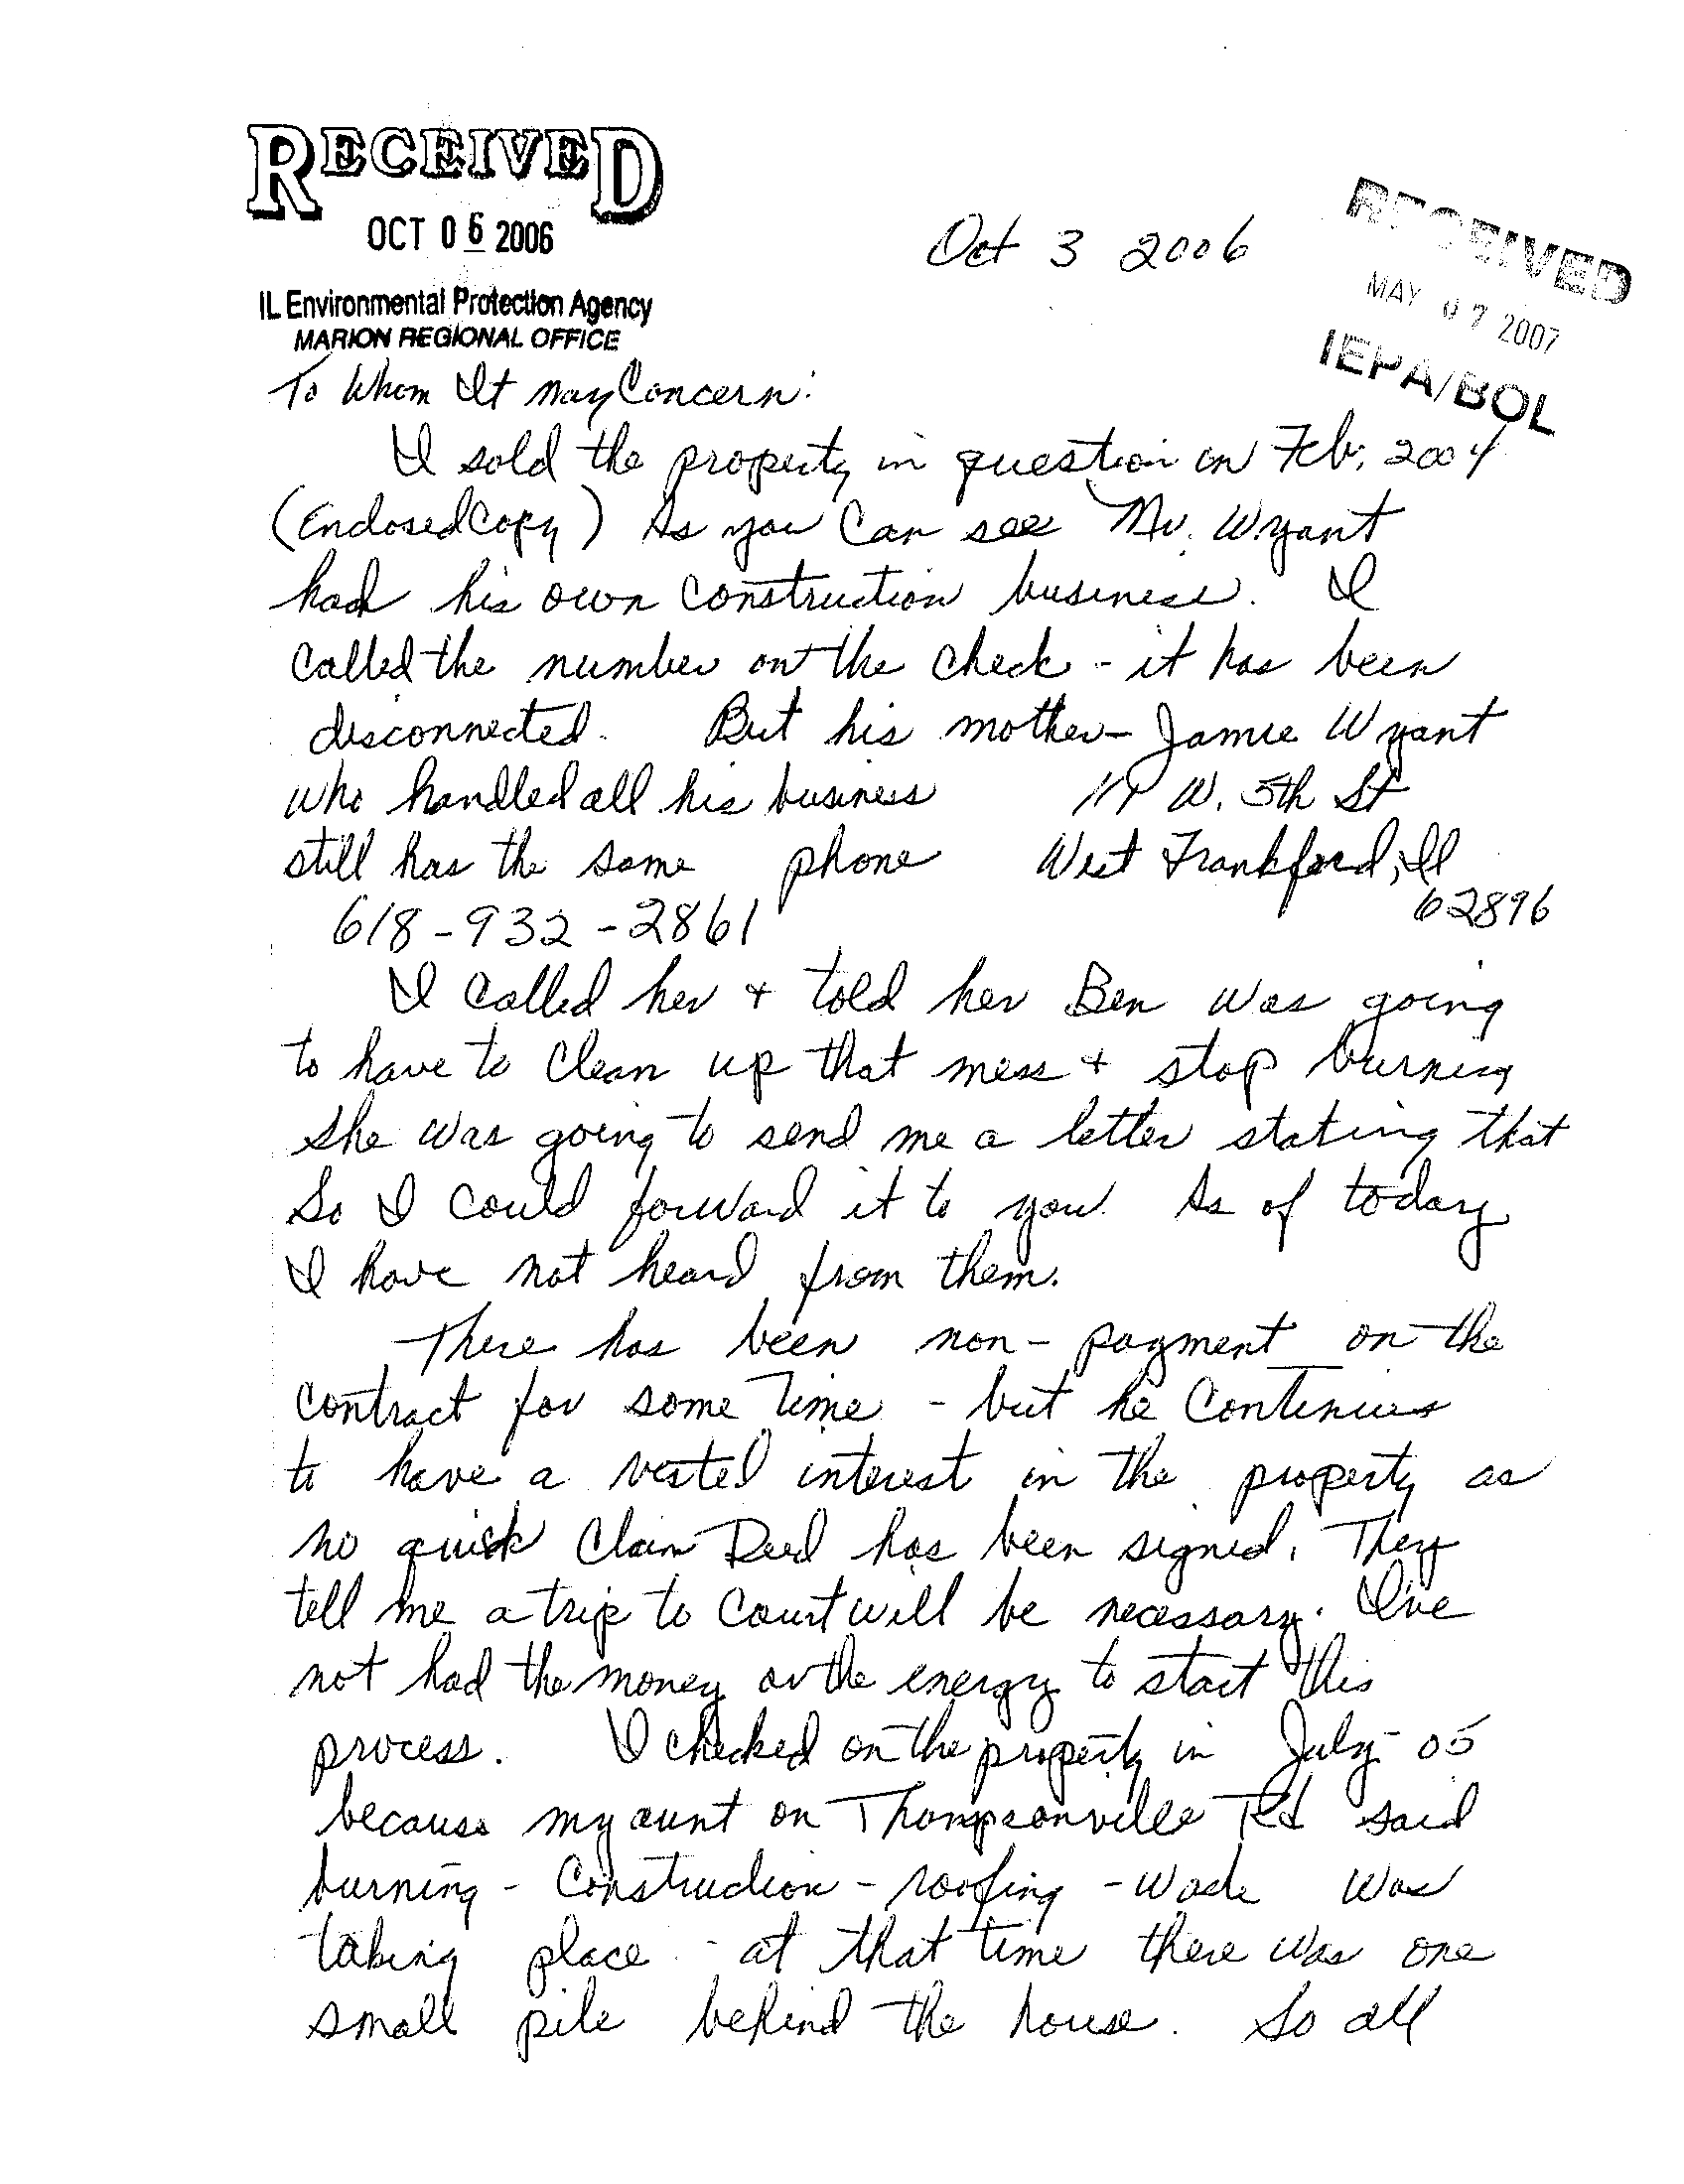 RECEIVED
OCT 06 2006
IL Environmental Protection Agency
MARION REGIONAL OFFICE
Oct 3 2006
RECEIVED
MAY 07 2007
IEPA/BOL
To Whom It May Concern:
I sold the property in question in Feb, 2004
(Enclosed Copy) As you can see Mr. Wyant
had his own construction business. I
called the number on the check - it has been
disconnected. But his mother - Jamie Wyant
who handled all his business W. 5th St
still has the same phone West Frankford, Il
618-932-2861 62896
I called her + told her Ben was going
to have to clean up that mess + stop burning
she was going to send me a letter stating that
So I could forward it to you. As of today
I have not heard from them.
There has been non-payment on the
contract for some time - but he continues
to have a vested interest in the property as
no quick Claim Deed has been signed. They
tell me a trip to Court will be necessary. I've
not had the money or the energy to start this
process. I checked on the property in July 05
because my aunt on Thompsonville Rd said
burning - Construction - roofing - waste was
taking place - at that time there was one
small pile behind the house. So all